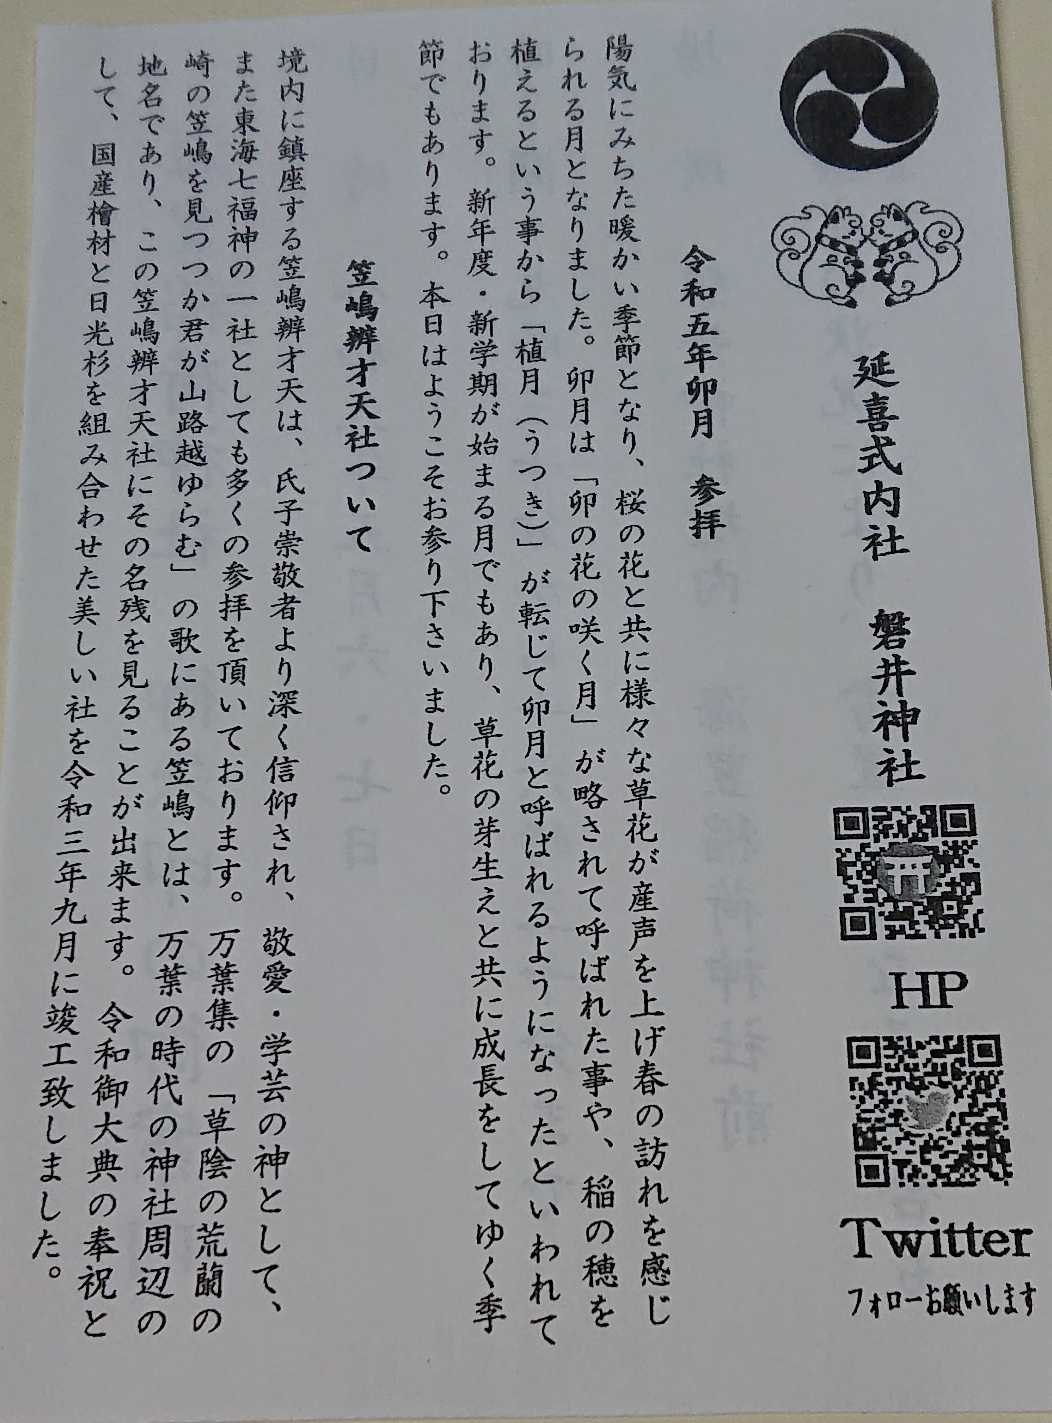 延喜式内社 磐井神社
HP
Twitter
フォローお願いします
令和五年卯月 参拝
陽気にみちた暖かい季節となり、桜の花と共に様々な草花が産声を上げ春の訪れを感じ
られる月となりました。卯月は「卯の花の咲く月」が略されて呼ばれた事や、稲の穂を
植えるという事から「植月（うつき）」が転じて卯月と呼ばれるようになったといわれて
おります。新年度・新学期が始まる月でもあり、草花の芽生えと共に成長をしてゆく季
節でもあります。本日はようこそお参り下さいました。
笠嶋辨才天社ついて
境内に鎮座する笠嶋辨才天は、氏子崇敬者より深く信仰され、敬愛・学芸の神として、
また東海七福神の一社としても多くの参拝を頂いております。万葉集の「草陰の荒藺の
崎の笠嶋を見つつか君が山路越ゆらむ」の歌にある笠嶋とは、万葉の時代の神社周辺の
地名であり、この笠嶋辨才天社にその名残を見ることが出来ます。令和御大典の奉祝と
して、国産檜材と日光杉を組み合わせた美しい社を令和三年九月に竣工致しました。